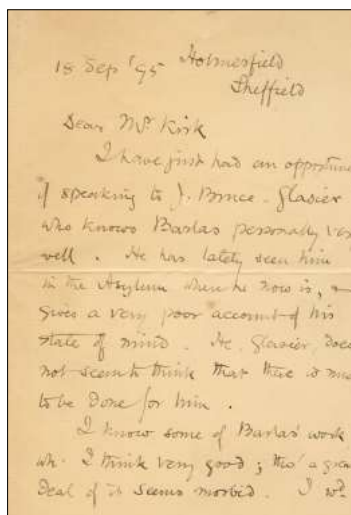 18 Sep '95 Holmesfield
Sheffield
Dear Mr Kirk
I have just had an opportun
of speaking to J. Bruce-Glasier
who knows Barlas personally ver
well. He has lately seen him
in the Asylum where he now is, &
gives a very poor account of his
state of mind. He, Glasier, does
not seem to think that there is mu
to be done for him.
I know some of Barlas' work
wh. I think very good; tho' a grea
deal of it seems morbid. I wd.